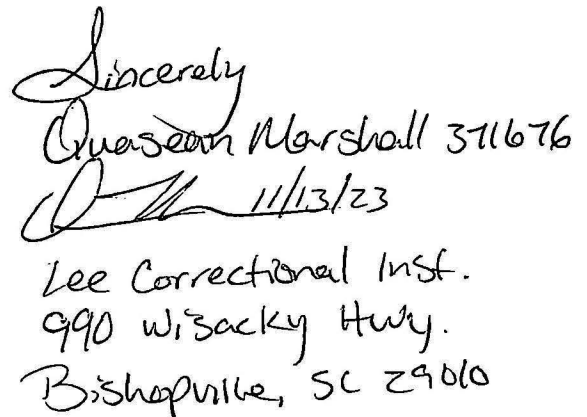 Sincerely
Quasean Marshall 371676
11/13/23
Lee Correctional Inst.
990 Wisacky Hwy.
Bishopville, SC 29010